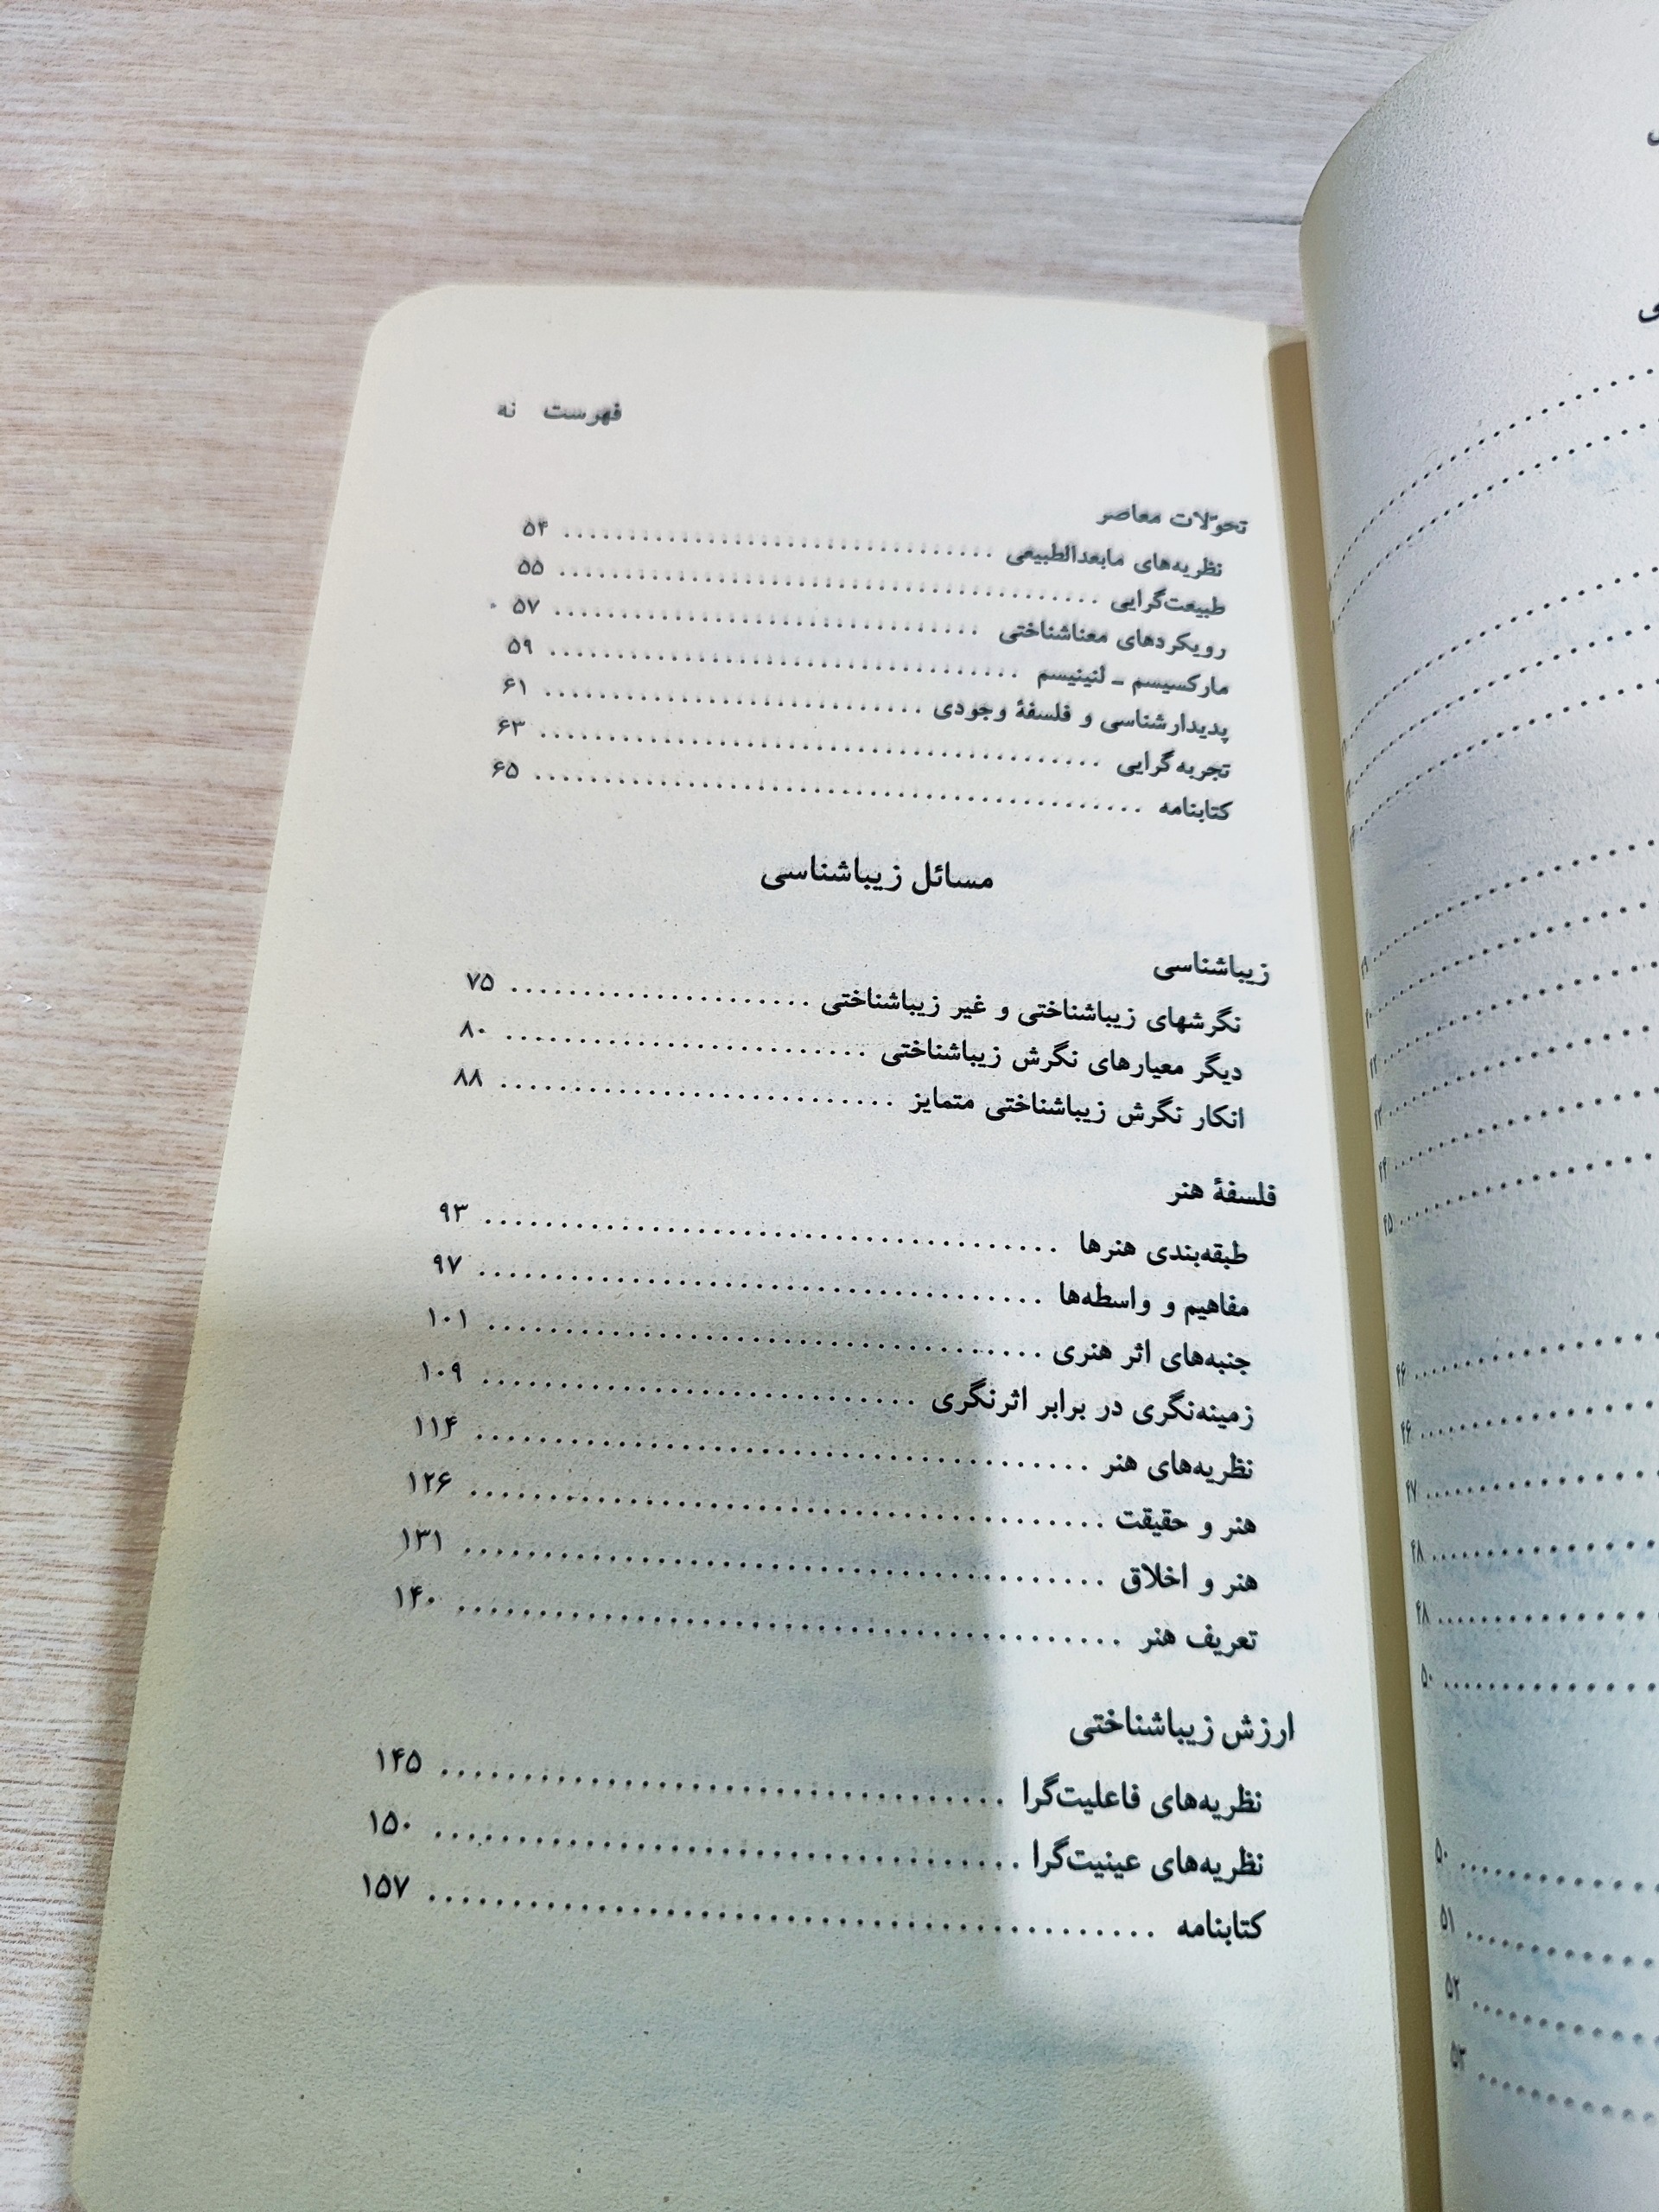 فهرست نه
تحوّلات معاصر
نظریه‌های مابعدالطبیعی ........ ۵۴
طبیعت‌گرایی ........ ۵۵
رویکردهای معناشناختی ........ ۵۷
مارکسیسم ـ لنینیسم ........ ۵۹
پدیدارشناسی و فلسفهٔ وجودی ........ ۶۱
تجربه‌گرایی ........ ۶۳
کتابنامه ........ ۶۵
مسائل زیباشناسی
زیباشناسی
نگرشهای زیباشناختی و غیر زیباشناختی ........ ۷۵
دیگر معیارهای نگرش زیباشناختی ........ ۸۰
انکار نگرش زیباشناختی متمایز ........ ۸۸
فلسفهٔ هنر
طبقه‌بندی هنرها ........ ۹۳
مفاهیم و واسطه‌ها ........ ۹۷
جنبه‌های اثر هنری ........ ۱۰۱
زمینه‌نگری در برابر اثرنگری ........ ۱۰۹
نظریه‌های هنر ........ ۱۱۴
هنر و حقیقت ........ ۱۲۶
هنر و اخلاق ........ ۱۳۱
تعریف هنر ........ ۱۴۰
ارزش زیباشناختی
نظریه‌های فاعلیت‌گرا ........ ۱۴۵
نظریه‌های عینیت‌گرا ........ ۱۵۰
کتابنامه ........ ۱۵۷